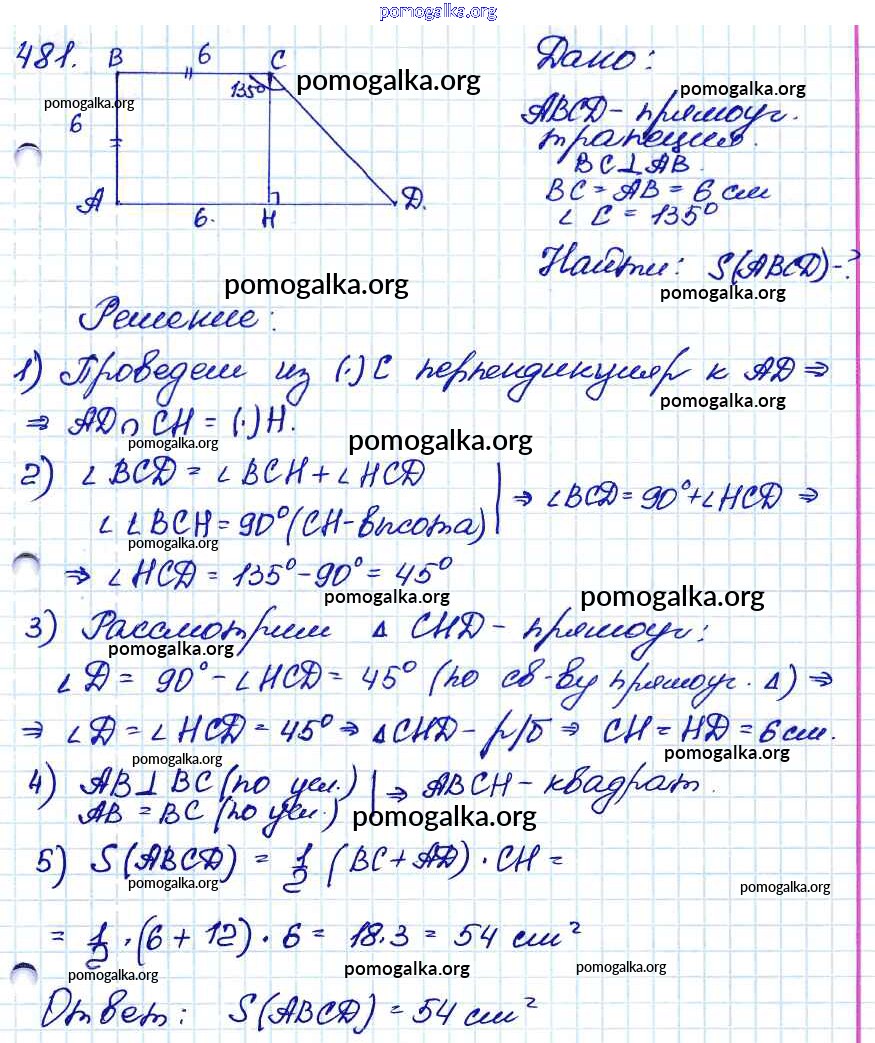 pomogalka.org
481.
B 6 C
135°
6
A 6. H D.
Дано:
ABCD - прямоуг.
трапеция.
BC⊥AB.
BC = AB = 6 см
∠ C = 135°
Найти: S(ABCD)-?
pomogalka.org
pomogalka.org
pomogalka.org
pomogalka.org
pomogalka.org
Решение:
1) Проведем из (·) C перпендикуляр к AD ⇒
pomogalka.org
⇒ AD ∩ CH = (·) H.
pomogalka.org
pomogalka.org
2) ∠ BCD = ∠ BCH + ∠ HCD
∠ ∠ BCH = 90° (CH - высота) | ⇒ ∠BCD = 90° + ∠HCD ⇒
pomogalka.org
⇒ ∠ HCD = 135° - 90° = 45°
pomogalka.org
pomogalka.org
3) Рассмотрим Δ CHD - прямоуг:
pomogalka.org
∠ D = 90° - ∠ HCD = 45° (по св-ву прямоуг. Δ) ⇒
⇒ ∠ D = ∠ HCD = 45° ⇒ ΔCHD - р/б ⇒ CH = HD = 6 см.
pomogalka.org
pomogalka.org
4) AB ⊥ BC (по усл.)
AB = BC (по усл.) | ⇒ ABCH - квадрат.
pomogalka.org
5) S(ABCD) = 1/2 (BC + AD) · CH =
pomogalka.org
pomogalka.org
= 1/2 · (6 + 12) · 6 = 18 · 3 = 54 см²
pomogalka.org
pomogalka.org
pomogalka.org
Ответ: S(ABCD) = 54 см²